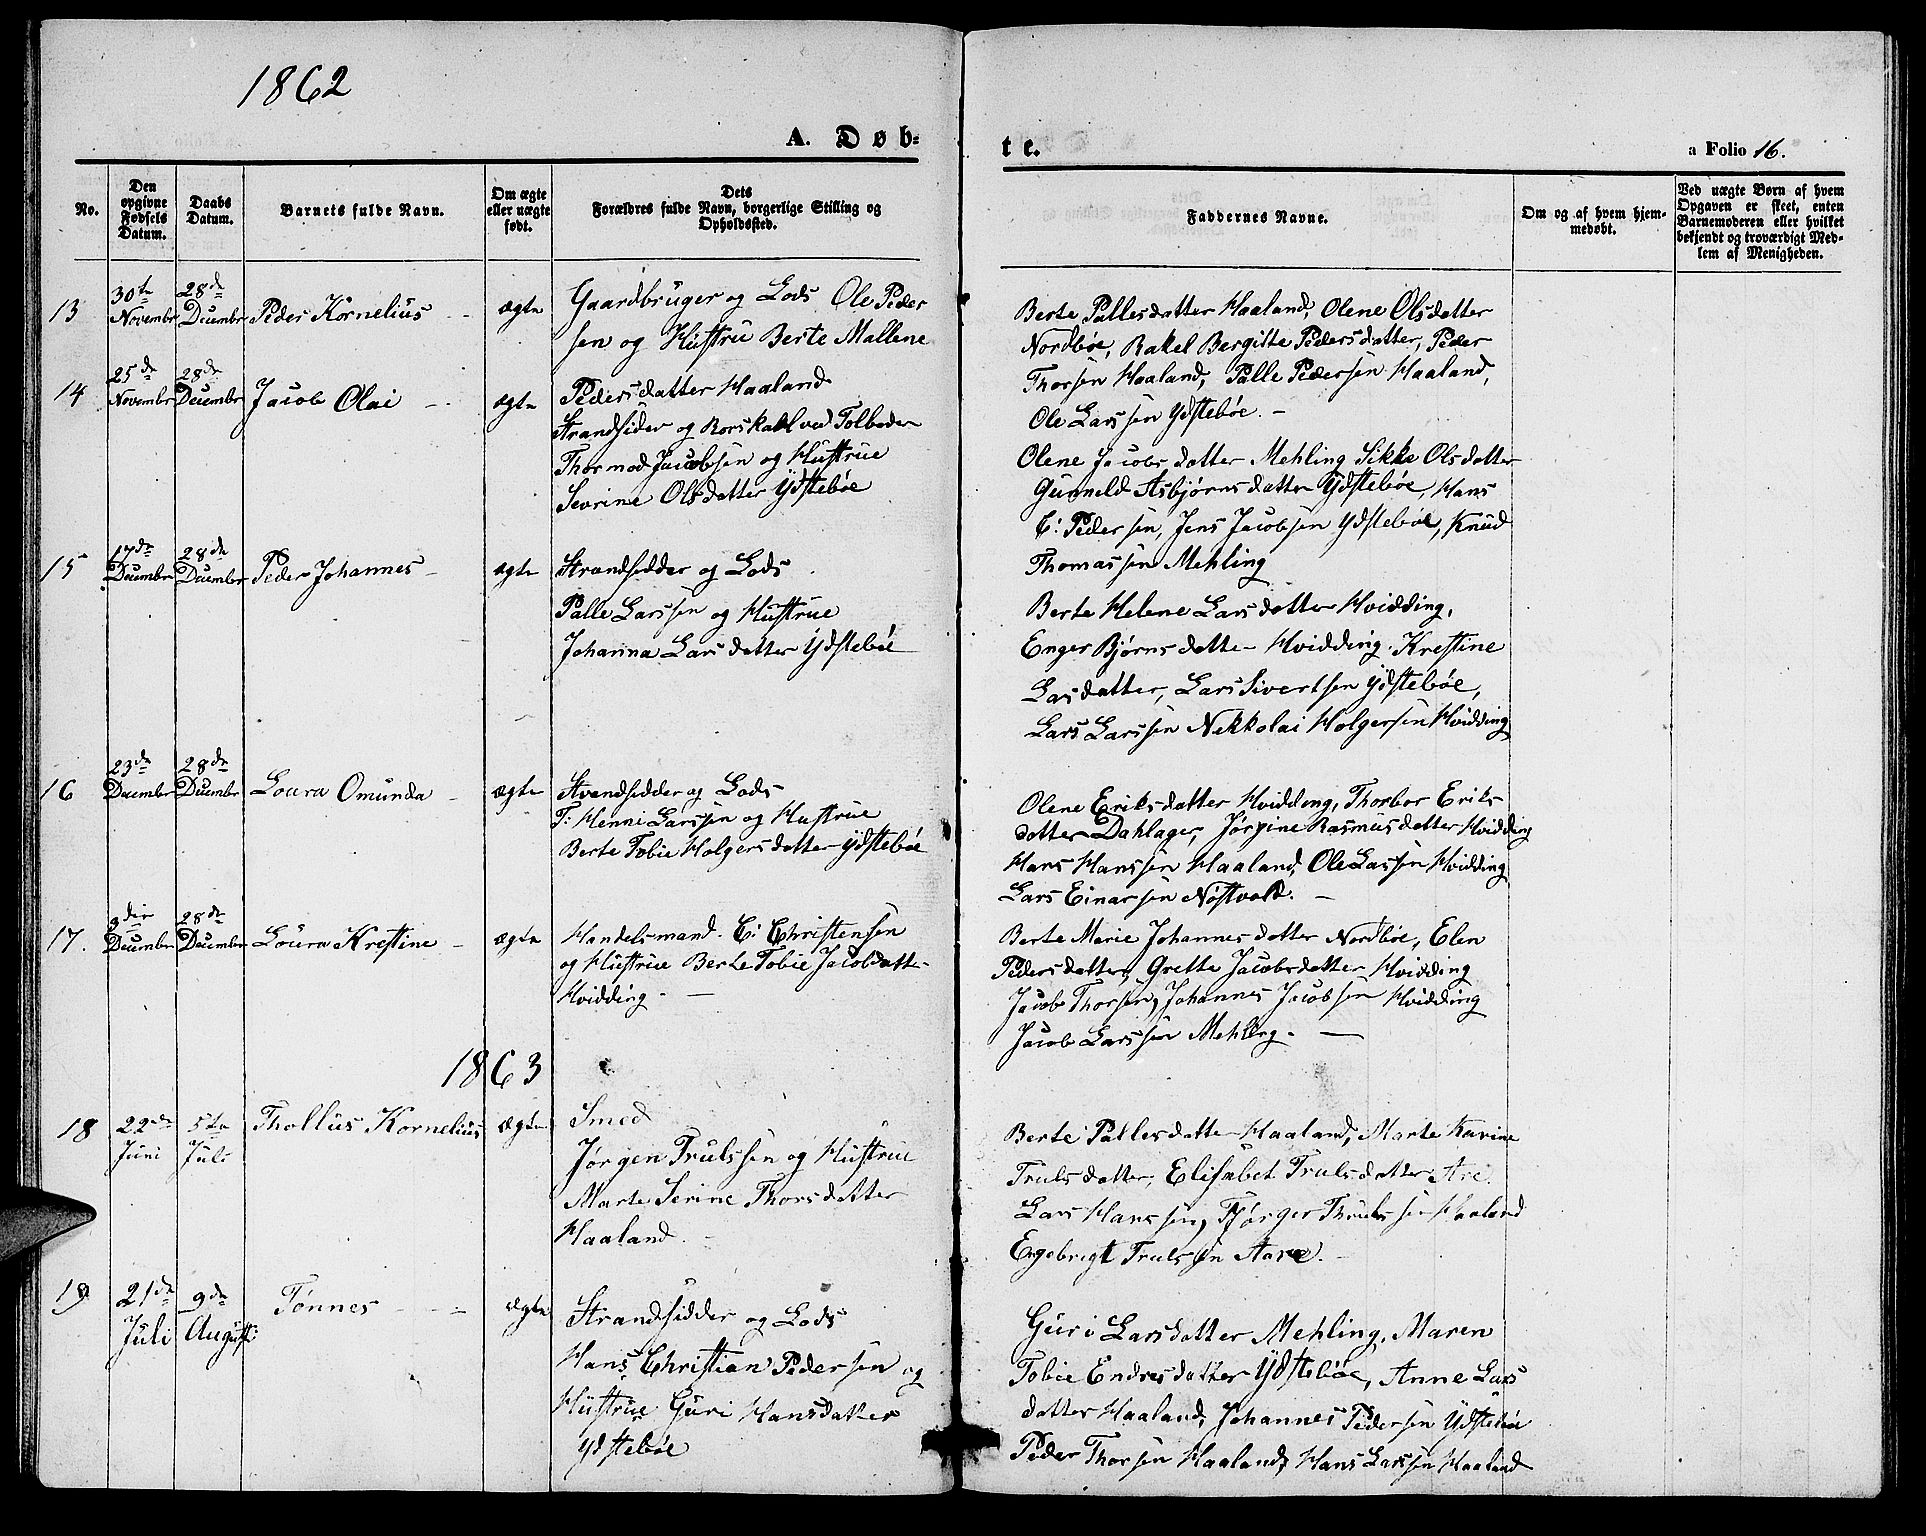 1862
A. Døb-
te.
a Folio 16.
No.
Den opgivne Fødsels Datum.
Daabs Datum.
Barnets fulde Navn.
Om ægte eller uægte født.
Dets Forældres fulde Navn, borgerlige Stilling og Opholdssted.
Faddernes Navne.
Om og af hvem hjemmedøbt.
Ved uægte Børn af hvem Opgaven er skeet, enten Barnemoderen eller hvilket bekjendt og troværdigt Medlem af Menigheden.
13 30te Novembr 28de Decembr Peder Kornelius - - ægte
Gaardbruger og Lods Ole Peder
sen og Hustru Berte Mallene
Pedersdatter Haaland
Berte Pallesdatter Haaland, Olene Olsdatter
Nordbøe, Rakel Bergitte Pedersdatter, Peder
Thorsen Haaland, Palle Pedersen Haaland,
Ole Larssen Ydstebøe. -
14 25de Novembr 28de Decembr Jacob Olai - - ægte
Strandsider og Rorskarl ved Tolboden
Thormod Jacobsen og Hustrue
Sevrine Olsdatter Ydstebøe
Olene Jacobsdatter Mehling Sikke Olsdatter
Gunneld Asbjørnsdatter Ydstebøe, Hans
C: Pedersen, Jens Jacobsen Ydstebøe, Knud
Thomassen Mehling
15 17de Decembr 28de Decembr Peder Johannes - ægte
Strandsidder og Lods
Palle Larssen og Hustrue
Johanna Larsdatter Ydstebøe
Berte Helene Larsdatter Hvidding,
Enger Bjørnsdatte- Hvidding. Krestine
Larsdatter, Lars Sivertsen Ydstebøe,
Lars Larssen Nekkolai Holgersen Hvidding
16 23de Decembr 28de Decembr Loura Omunda - ægte
Strandsidder og Lods
T: Henni Larssen og Hustrue
Berte Tobie Holgersdatter Ydstebøe
Olene Eriksdatter Hvidding, Thorbor Eriks
datter Dahlager, Jørgine Rasmusdatter Hvidding
Hans Hanssen Haaland, Ole Larssen Hvidding
Lars Einarsen Nøstvold. -
17. Decembr 28de Decembr Loura Krestine - ægte
Handelsmand. C: Christensen
og Hustrue Berte Tobie Jacobdatte-
Hvidding - -
Berte Marie Johannesdatter Nordbøe, Elen
Pedersdatter, Grette Jacobsdatter Hvidding
Jacob Thorsen, Johannes Jacobsen Hvidding
Jacob Larssen Mehling. -
1863
18 22de Juni 5te Juli Thollius Kornelius ægte
Smed
Jørgen Trulssen og Hustrue
Marte Serine Thorsdatter
Haaland. -
Berte Pallesdatte- Haaland, Marte Karine
Trulsdatter, Elisabet Trulsdatter Are.
Lars Hanssen, Tjørger Thrulssen Haaland
Engebrigt Trulssen Aare. -
19 21de Juli 9de August Tønnes - - = ægte
Strandsidder og Lods
Hans Christian Pedersen og
Hustrue Guri Hansdatter
Ydstebøe
Guri Larsdatter Mehling, Maren
Tobie Endresdatter Ydstebøe, Anne Lars
datter Haaland, Johannes Pedersen Ydstebøe
Peder Thorsen Haaland, Hans Larssen Haaland